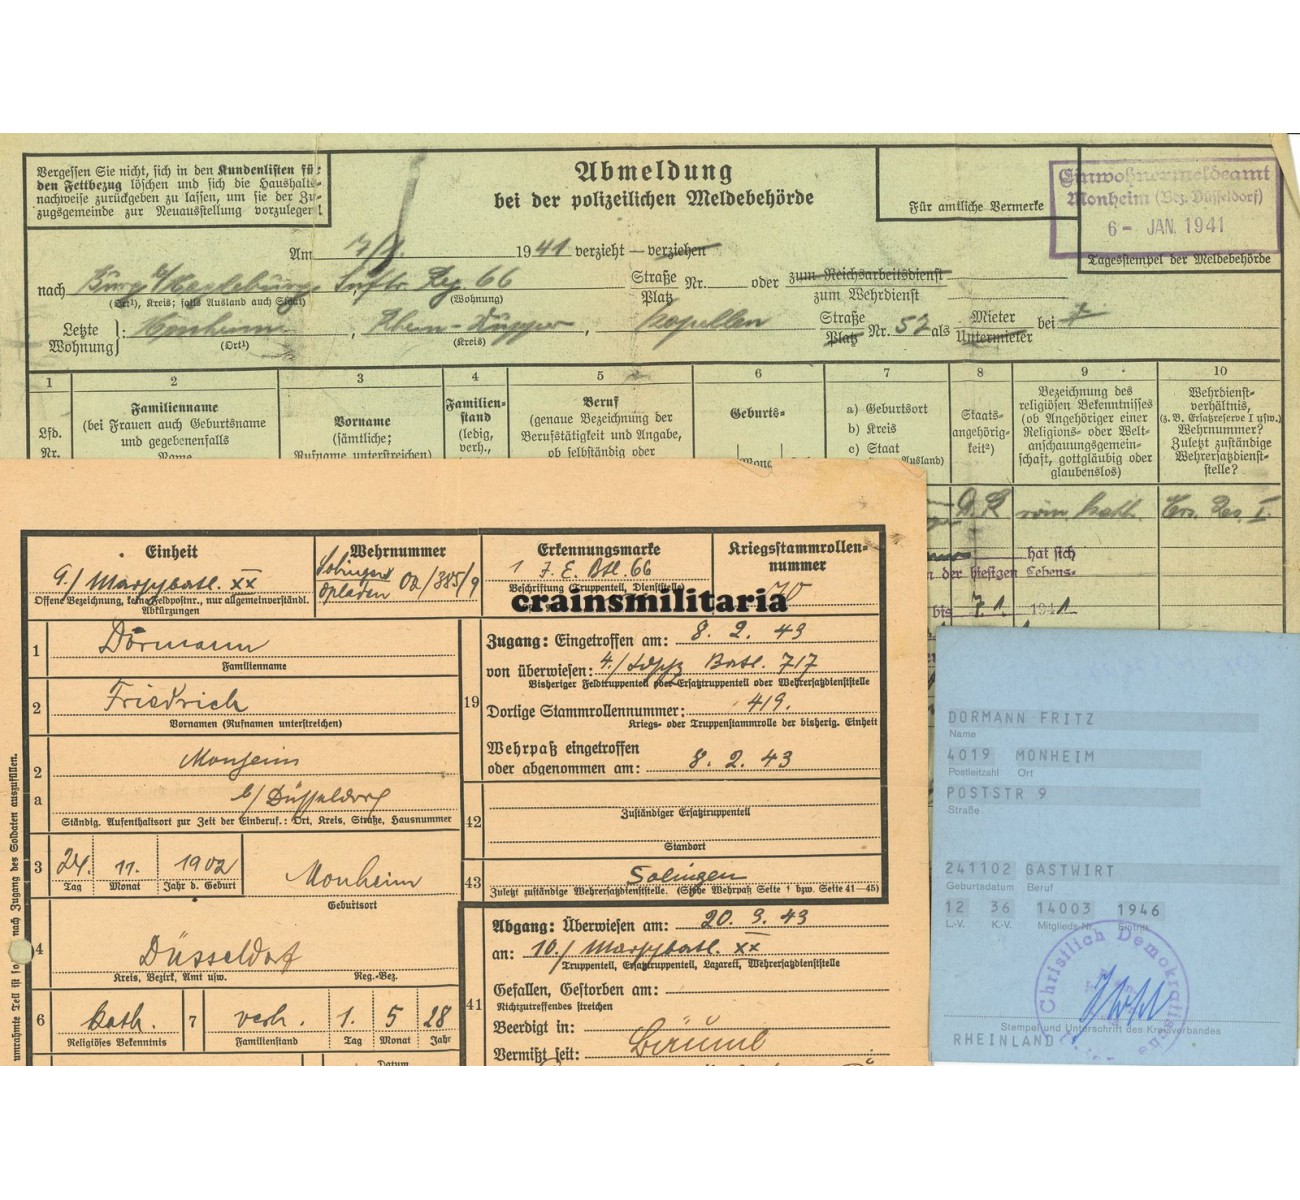 Vergessen Sie nicht, sich in den Kundenlisten für
den Fettbezug löschen und sich die Haushalts-
nachweise zurückgeben zu lassen, um sie der Zu-
zugsgemeinde zur Neuausstellung vorzulegen!
Abmeldung
bei der polizeilichen Meldebehörde
Für amtliche Vermerke
Einwohnermeldeamt
Monheim (Bez. Düsseldorf)
6- JAN. 1941
Tagesstempel der Meldebehörde
Am 7/1. 1941 verzieht — verziehen
nach Burg b/Magdeburg Inftr. Reg. 66 Straße Platz Nr. oder zum Reichsarbeitsdienst zum Wehrdienst
(Ort¹), Kreis; falls Ausland auch Staat) (Wohnung)
Letzte Wohnung: Monheim, Rhein-Wupper, Kapellen Straße Platz Nr. 52 als Mieter Untermieter bei
(Ort¹) (Kreis)
1 2 3 4 5 6 7 8 9 10
Lfd. Nr.
Familienname
(bei Frauen auch Geburtsname
und gegebenenfalls
Name
Vorname
(sämtliche;
Rufnamen unterstreichen)
Familien-
stand
(ledig,
verh.,
Beruf
(genaue Bezeichnung der
Berufstätigkeit und Angabe,
ob selbständig oder
Geburts-
Mona
a) Geburtsort
b) Kreis
c) Staat
Ausland)
Staats-
angehörig-
keit²)
Bezeichnung des
religiösen Bekenntnisses
(ob Angehöriger einer
Religions- oder Welt-
anschauungsgemein-
schaft, gottgläubig oder
glaubenslos)
Wehrdienst-
verhältnis,
(z. B. Ersatzreserve I usw.)
Wehrnummer?
Zuletzt zuständige
Wehrersatzdienst-
stelle?
D.R. röm. kath. Ers. Res. I.
hat sich
n der hiesigen Lebens-
bis 7.1. 1941
Einheit
9./ Marschbatl. XX
Offene Bezeichnung, keine Feldpostnr., nur allgemeinverständl.
Abkürzungen
Wehrnummer
Solingen
Opladen 02/385/9
Erkennungsmarke
1 J. E. Btl. 66
Beschriftung (Truppenteil, Dienststelle)
Kriegsstammrollen-
nummer
70
crainsmilitaria
1 Dörmann
Familienname
2 Friedrich
Vornamen (Rufnamen unterstreichen)
2 a Monheim
b/ Düsseldorf
Ständig. Aufenthaltsort zur Zeit der Einberuf.: Ort, Kreis, Straße, Hausnummer
3 24. 11. 1902 Monheim
Tag Monat Jahr d. Geburt Geburtsort
4 Düsseldorf
Kreis, Bezirk, Amt usw. Reg.-Bez.
6 kath. 7 verh. 1. 5 28
Religiöses Bekenntnis Familienstand Tag Monat Jahr
Datum
umrahmte Teil ist so nach Zugang des Soldaten auszufüllen.
19
Zugang: Eingetroffen am: 8. 2. 43
von überwiesen: 4./ Ldsch Batl. 717
Bisheriger Feldtruppenteil oder Ersatztruppenteil oder Wehrersatzdienststelle
Dortige Stammrollennummer: 419.
Kriegs- oder Truppenstammrolle der bisherig. Einheit
Wehrpaß eingetroffen
oder abgenommen am: 8. 2. 43
42
Zuständiger Ersatztruppenteil
Standort
43 Solingen
Zuletzt zuständige Wehrersatzdienststelle. (Siehe Wehrpaß Seite 1 bzw. Seite 41—45)
41
Abgang: Überwiesen am: 20. 3. 43
an: 10./ Marschbatl. XX
Truppenteil, Ersatztruppenteil, Lazarett, Wehrersatzdienststelle
Gefallen, Gestorben am:
Nichtzutreffendes streichen
Beerdigt in:
Vermißt seit:
DORMANN FRITZ
Name
4019 MONHEIM
Postleitzahl Ort
POSTSTR 9
Straße
241102 GASTWIRT
Geburtsdatum Beruf
12 36 14003 1946
L.-V. K.-V. Mitglieds-Nr. Eintritt
Christlich Demokratische
Stempel und Unterschrift des Kreisverbandes
RHEINLAND